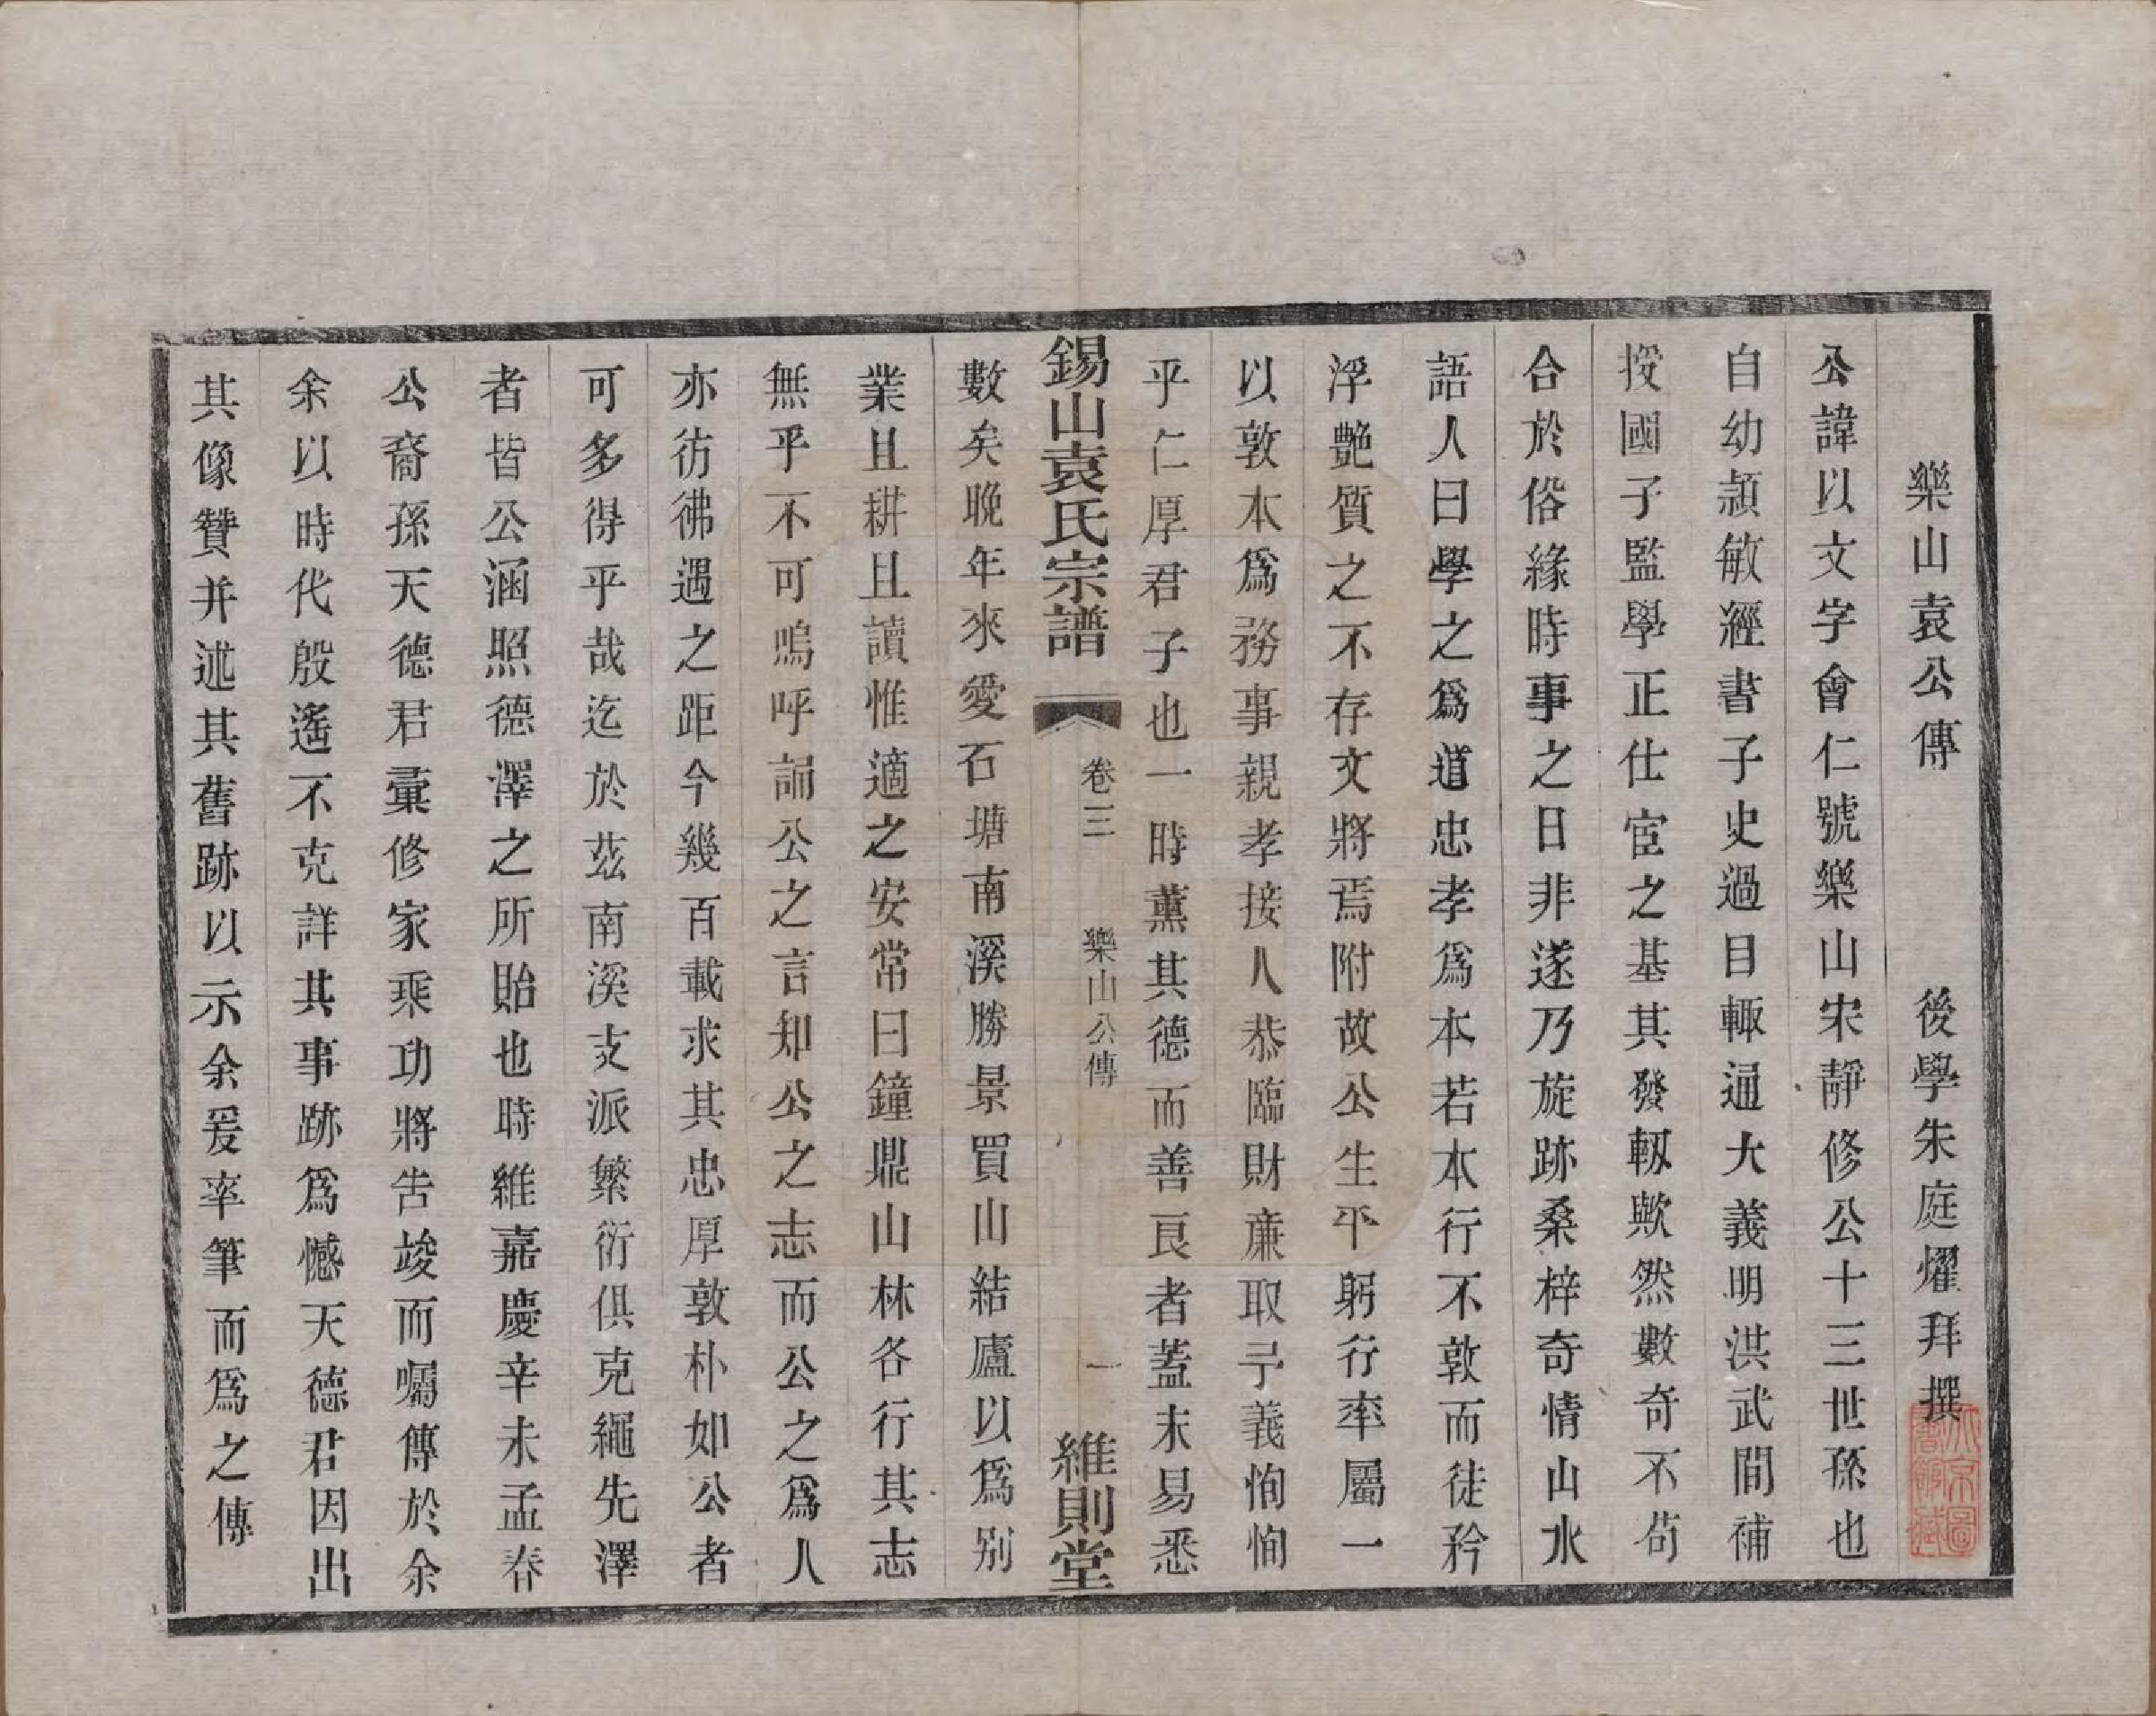 樂山袁公傳　後學朱庭燿拜撰
公諱以文字會仁號樂山宋靜修公十三世孫也
自幼穎敏經書子史過目輒通大義明洪武間補
授國子監學正仕宦之基其發軔歟然數奇不茍
合於俗緣時事之日非遂乃旋跡桑梓奇情山水
語人曰學之爲道忠孝爲本若本行不敦而徒矜
浮艷質之不存文將焉附故公生平躬行率屬一
以敦本爲務事親孝接人恭臨財廉取予義恂恂
乎仁厚君子也一時薰其德而善良者蓋未易悉
錫山袁氏宗譜　卷三　樂山公傳　一　維則堂
數矣晚年來愛石塘南溪勝景買山結廬以爲別
業且耕且讀惟適之安常曰鐘鼎山林各行其志
無乎不可嗚呼誦公之言知公之志而公之爲人
亦彷彿遇之距今幾百載求其忠厚敦朴如公者
可多得乎哉迄於茲南溪支派繁衍俱克繩先澤
者皆公涵照德澤之所貽也時維嘉慶辛未孟春
公裔孫天德君彙修家乘功將告竣而囑傳於余
余以時代殷遙不克詳其事跡爲憾天德君因出
其像贊并述其舊跡以示余爰率筆而爲之傳